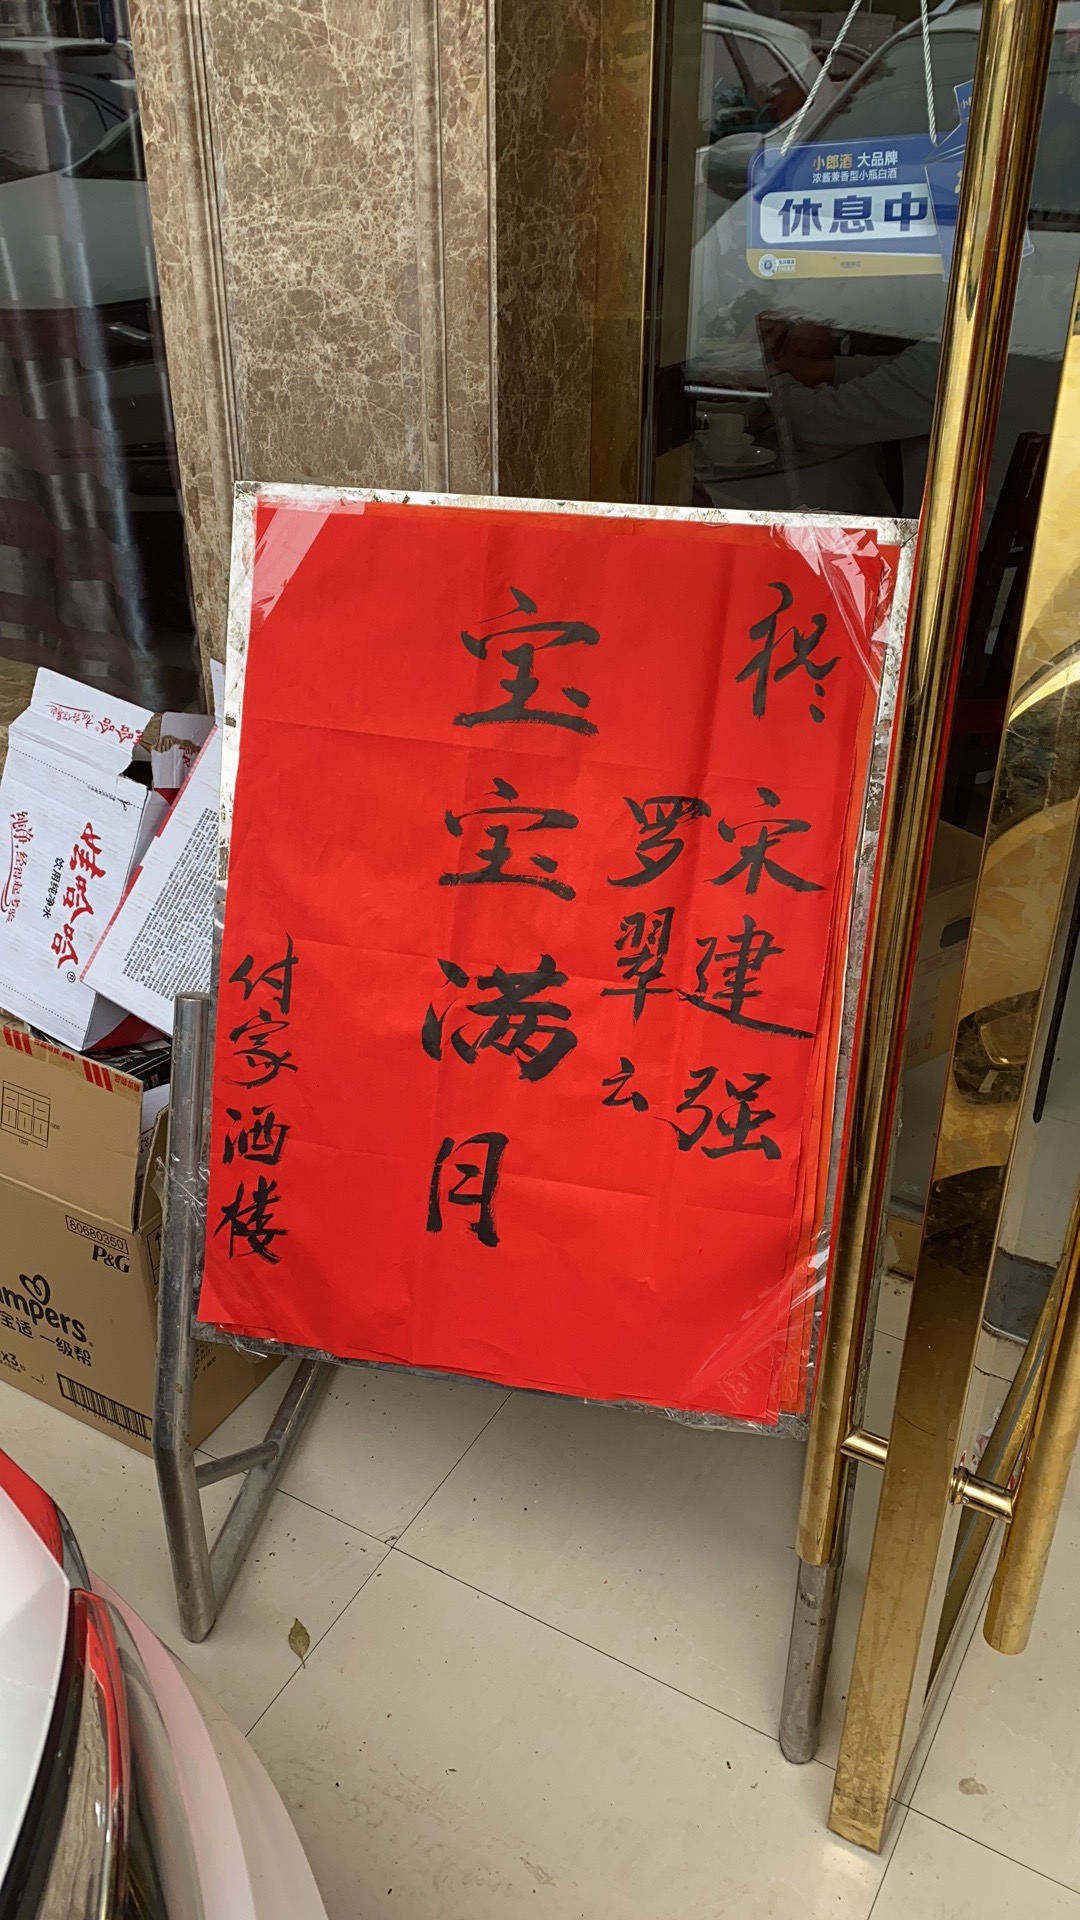 小郎酒 大品牌
浓酱兼香型小瓶白酒
休息中
祝:
宋建强
罗翠云
宝宝满月
付家酒楼
娃哈哈
饮用纯净水
娃哈哈®
80680350
P&G
ampers
宝适 一级帮
x3